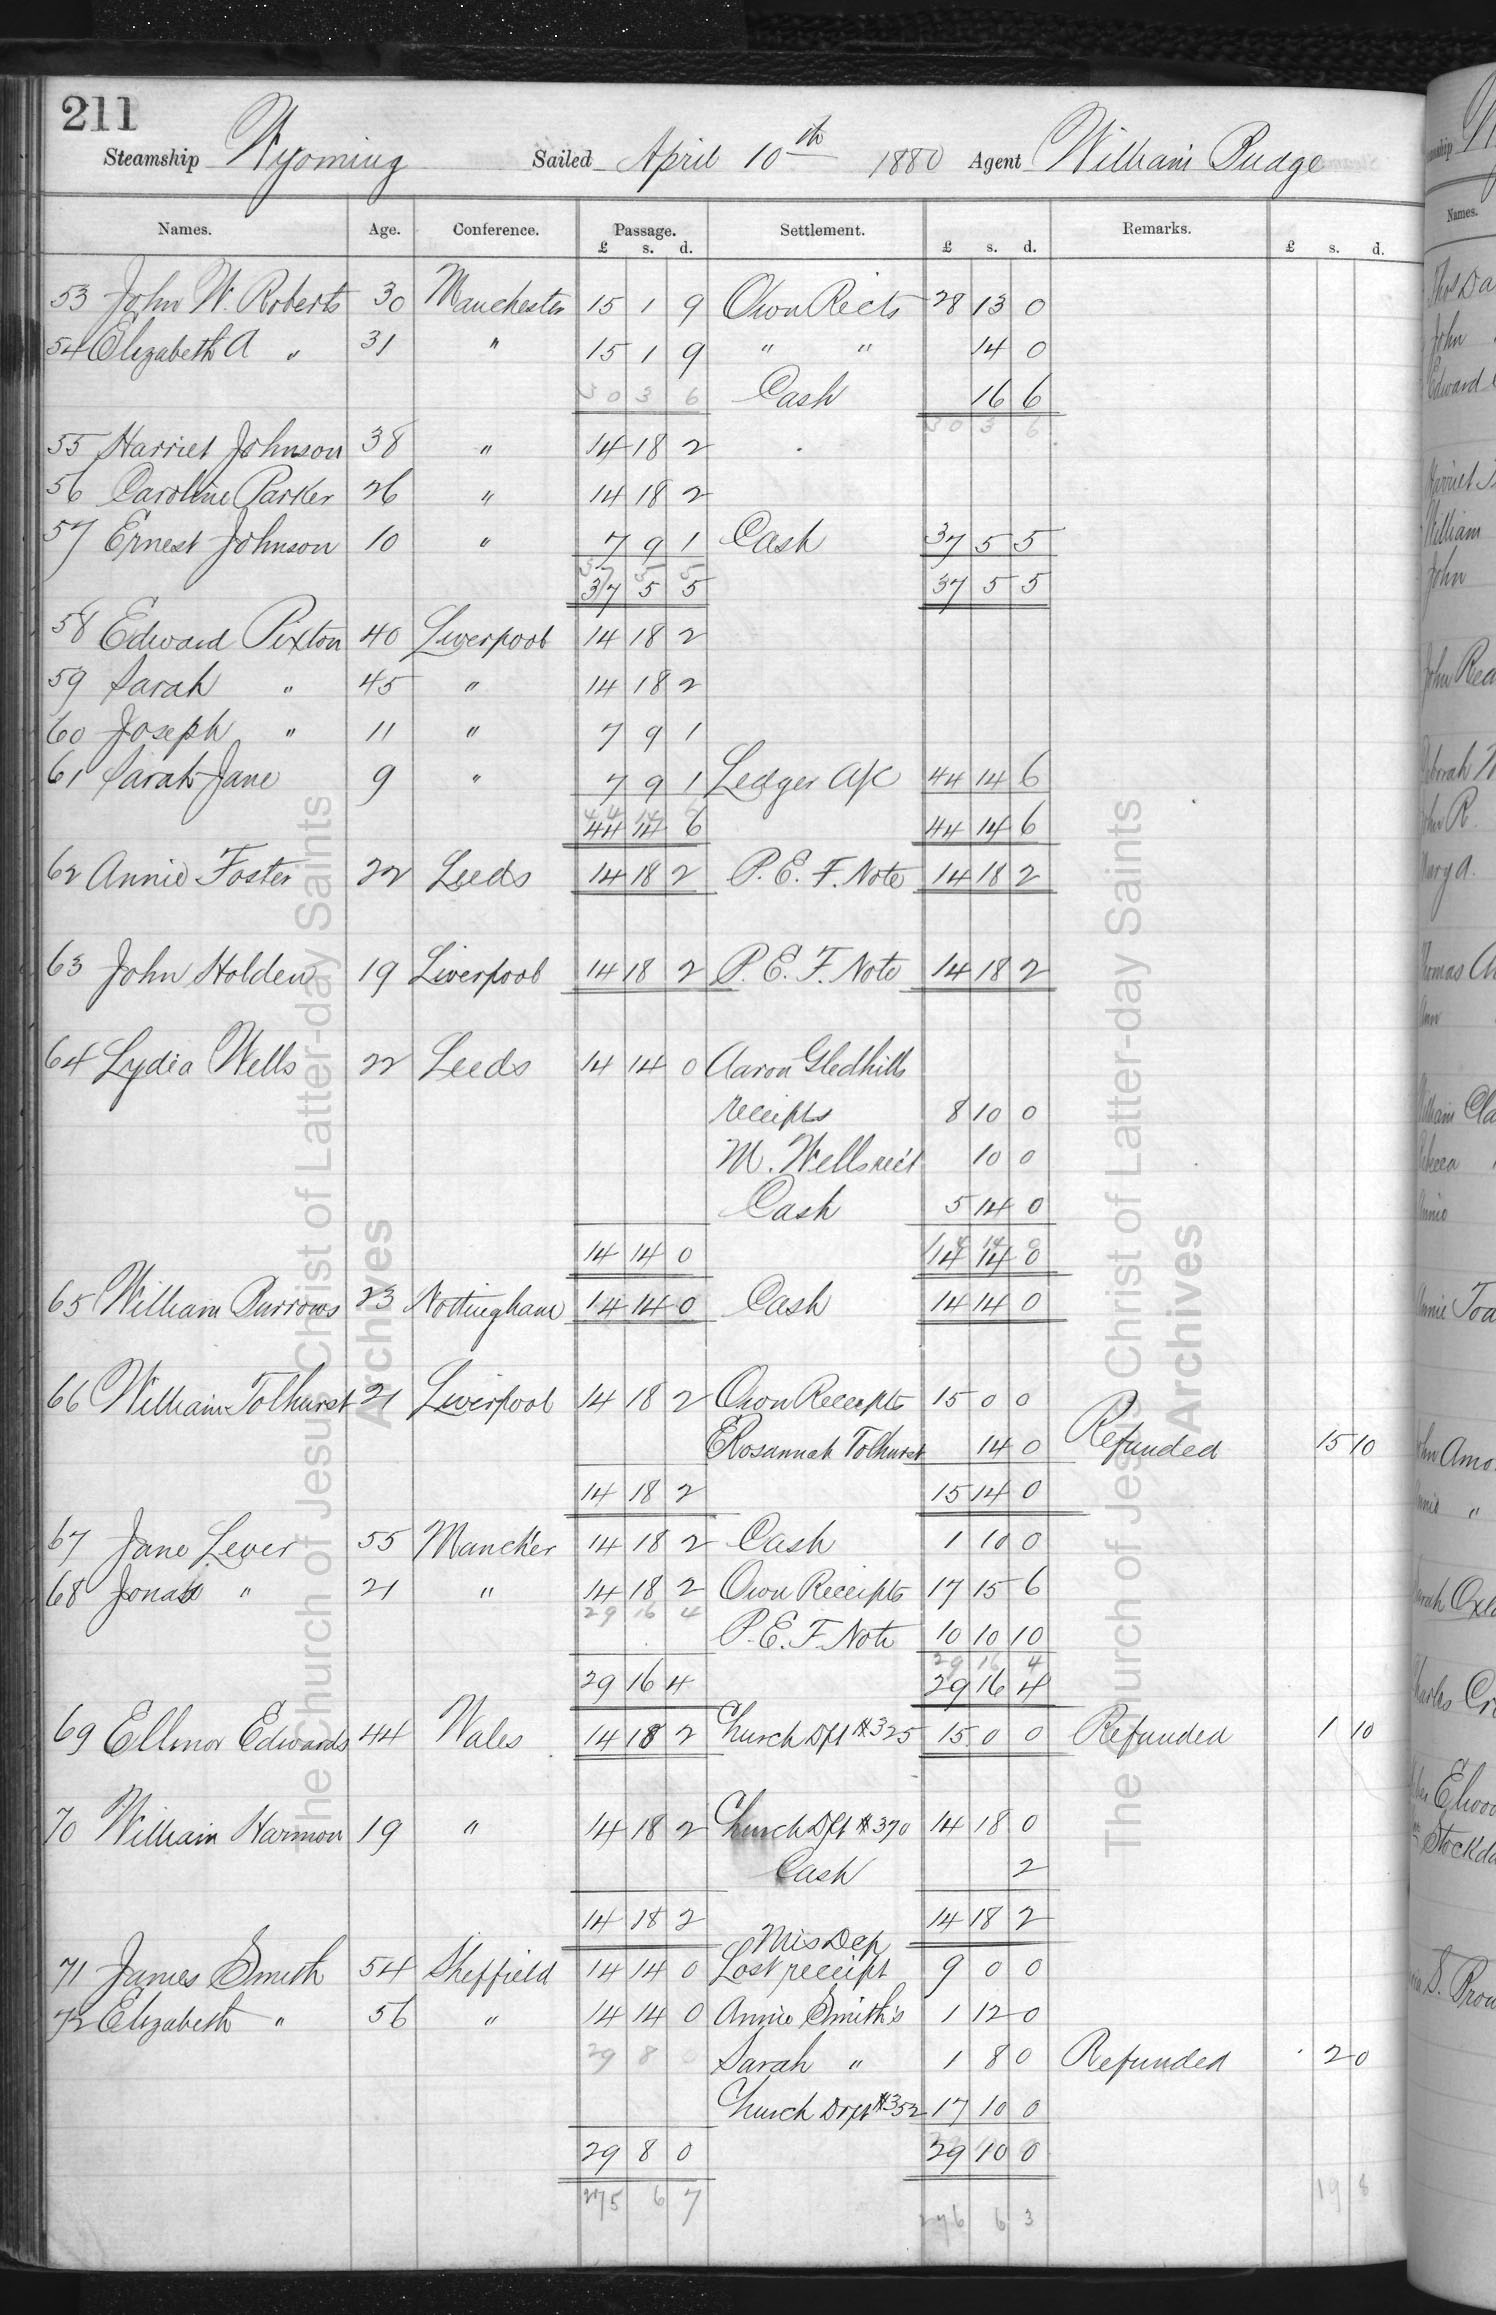 211
Steamship Wyoming Sailed April 10th 1880 Agent William Budge
Names. Age. Conference. Passage. Settlement. Remarks.
£ s. d. £ s. d. £ s. d.
53 John W. Roberts 30 Manchester 15 1 9 Own Rects 28 13 0
54 Elizabeth A " 31 " 15 1 9 " " 14 0
30 3 6 Cash 16 6
30 3 6
55 Harriet Johnson 38 " 14 18 2
56 Caroline Parker 26 " 14 18 2
57 Ernest Johnson 10 " 7 9 1 Cash 37 5 5
37 5 5
37 5 5 37 5 5
58 Edward Pixton 40 Liverpool 14 18 2
59 Sarah " 45 " 14 18 2
60 Joseph " 11 " 7 9 1
61 Sarah Jane 9 " 7 9 1 Ledger A/C 44 14 6
44 14 6
44 14 6 44 14 6
62 Annie Foster 22 Leeds 14 18 2 P. E. F. Note 14 18 2
63 John Holden 19 Liverpool 14 18 2 P. E. F. Note 14 18 2
64 Lydia Wells 22 Leeds 14 14 0 Aaron Gledhills
receipts 8 10 0
M. Wells rec't 10 0
Cash 5 14 0
14 14 0 14 14 0
65 William Burrows 23 Nottingham 14 14 0 Cash 14 14 0
66 William Tolhurst 21 Liverpool 14 18 2 Own Receipts 15 0 0
E Rosannah Tolhurst 14 0 Refunded 15 10
14 18 2 15 14 0
67 Jane Lever 55 Manch'er 14 18 2 Cash 1 10 0
68 Jonas " 21 " 14 18 2 Own Receipts 17 15 6
29 16 4 P. E. F. Note 10 10 10
29 16 4
29 16 4 29 16 4
69 Ellinor Edwards 44 Wales 14 18 2 Church Dft #325 15 0 0 Refunded 1 10
70 William Harmon 19 " 14 18 2 Church Dft #370 14 18 0
Cash 2
14 18 2 14 18 2
Mis Dep
71 James Smith 54 Sheffield 14 14 0 Lost receipt 9 0 0
72 Elizabeth " 56 " 14 14 0 Annie Smith's 1 12 0
29 8 0 Sarah " 1 8 0 Refunded 2 0
Church Drft #352 17 10 0
29 8 0 29 10 0
275 6 7 276 6 3 19 8
The Church of Jesus Christ of Latter-day Saints
Archives
The Church of Jesus Christ of Latter-day Saints
Archives
Names.
John
Edward
Harriet
William
John